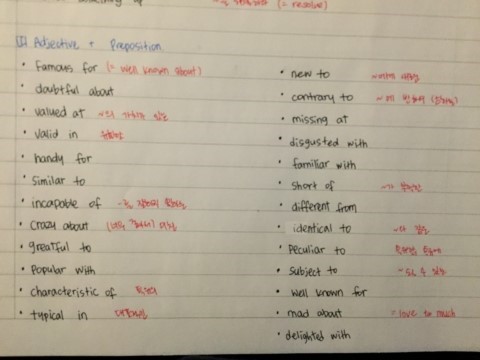 (= resolve)
Adjective + Preposition
• Famous for (= well known about)
• doubtful about
• valued at ~의 가치가 있는
• valid in
• handy for
• Similar to
• incapable of
• Crazy about
• greatful to
• Popular with
• characteristic of
• typical in
• new to
• contrary to
• missing at
• disgusted with
• familiar with
• short of ~가 부족한
• different from
• identical to
• Peculiar to
• Subject to
• well known for
• mad about = love to much
• delighted with